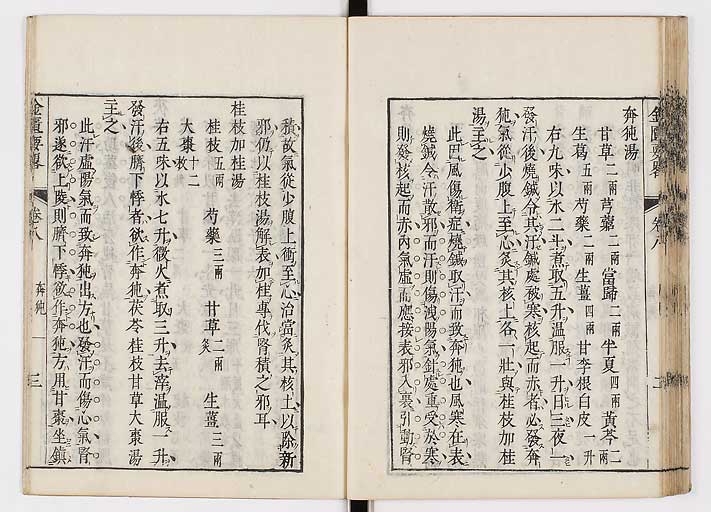 奔㹠湯
甘草二兩芎藭二兩當歸二兩半夏四兩黃芩二兩
生葛五兩芍藥二兩生薑四兩甘李根白皮一升
右九味以水二斗煮取五升温服一升日三夜一
發汗後燒鍼令其汗鍼處被寒核起而赤者必發奔
㹠氣從少腹上至心灸其核上各一壯與桂枝加桂
湯主之
此巳風傷衛症燒鍼取汗而致奔㹠也風寒在表
燒鍼令汗散邪而汗則傷洩陽氣針處重受於寒
則發核起而赤內氣虛而應接表邪入裏引動腎
積故氣從少腹上衝至心治當灸其核土以除新
邪仍以桂枝湯解表加桂專伐腎積之邪耳
桂枝加桂湯
桂枝五兩 芍藥三兩 甘草二兩炙 生薑三兩
大棗十二枚
右五味以水七升微火煮取三升去滓温服一升
發汗後臍下悸者欲作奔㹠茯苓桂枝甘草大棗湯
主之
此汗虛陽氣而致奔㹠出方也發汗而傷心氣腎
邪遂欲上陵則臍下悸欲作奔㹠方用甘棗坐鎮
金匱要畧 卷八 奔㹠 三